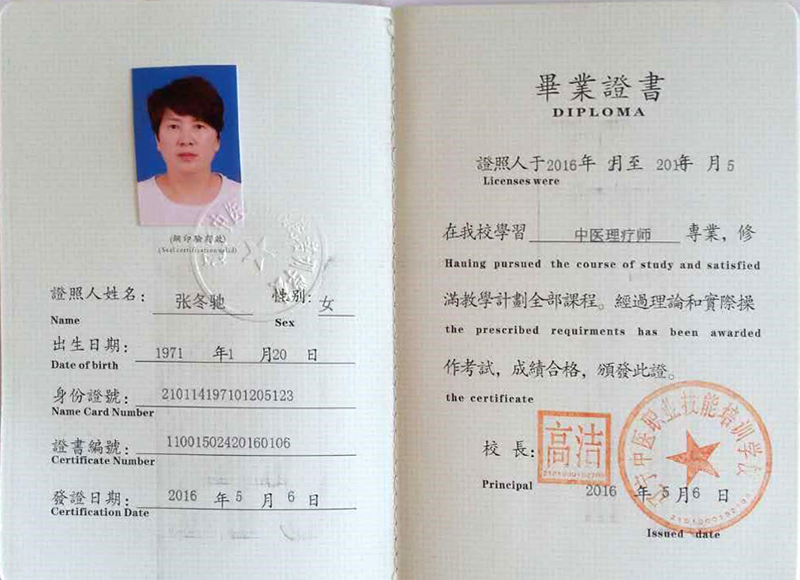 (鋼印驗有效)
(Seal certification valid)
證照人姓名: 张冬驰 性别: 女
Name Sex
出生日期: 1971 年1 月20 日
Date of birth
身份證號: 210114197101205123
Name Card Number
證書編號: 11001502420160106
Certificate Number
發證日期: 2016 年 5 月 6 日
Certification Date
畢業證書
DIPLOMA
證照人于2016年 月至 201 年 月 5
Licenses were
在我校學習 中医理疗师 專業, 修
Hauing pursued the course of study and satisfied
滿教學計劃全部課程。經過理論和實際操
the prescribed requirments has been awarded
作考試, 成績合格, 頒發此證。
the certificate
中医职业技能培训学校
校 長: 高洁
Principal
2016 年 5 月 6 日
Issued date